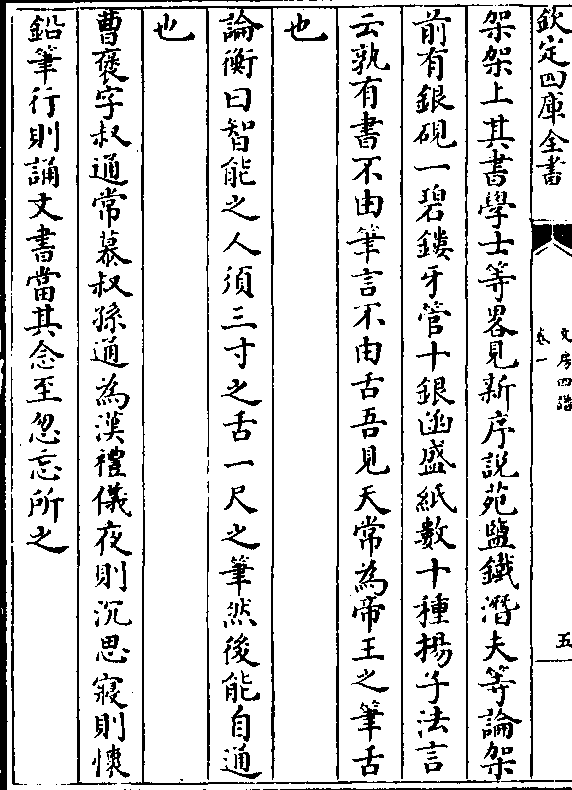 欽定四庫全書
文房四譜
卷一
五
架架上其書學士等畧見新序說苑鹽鐵潛夫等論架
前有銀硯一碧鏤牙管十銀函盛紙數十種揚子法言
云孰有書不由筆言不由舌吾見天常為帝王之筆舌
也
論衡曰智能之人須三寸之舌一尺之筆然後能自通
也
曹褒字叔通常慕叔孫通為漢禮儀夜則沉思寢則懷
鉛筆行則誦文書當其念至忽忘所之